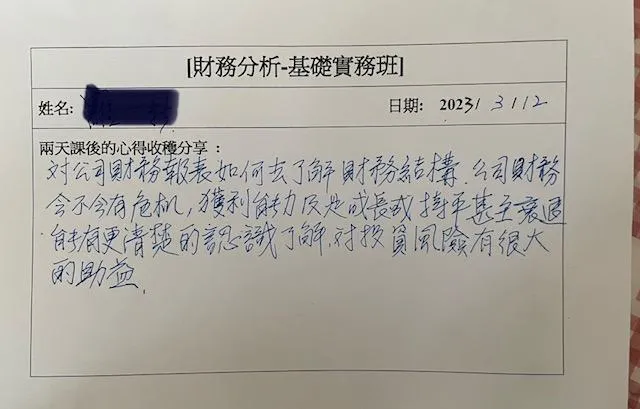 [財務分析-基礎實務班]
姓名: 日期: 2023/ 3/12
兩天課後的心得收穫分享：
对公司財務報表如何去了解財務結構.公司財務
会不会有危机,獲利能力及是成長或持平甚至衰退
能有更清楚的認識了解.对投資風險有很大
的助益.